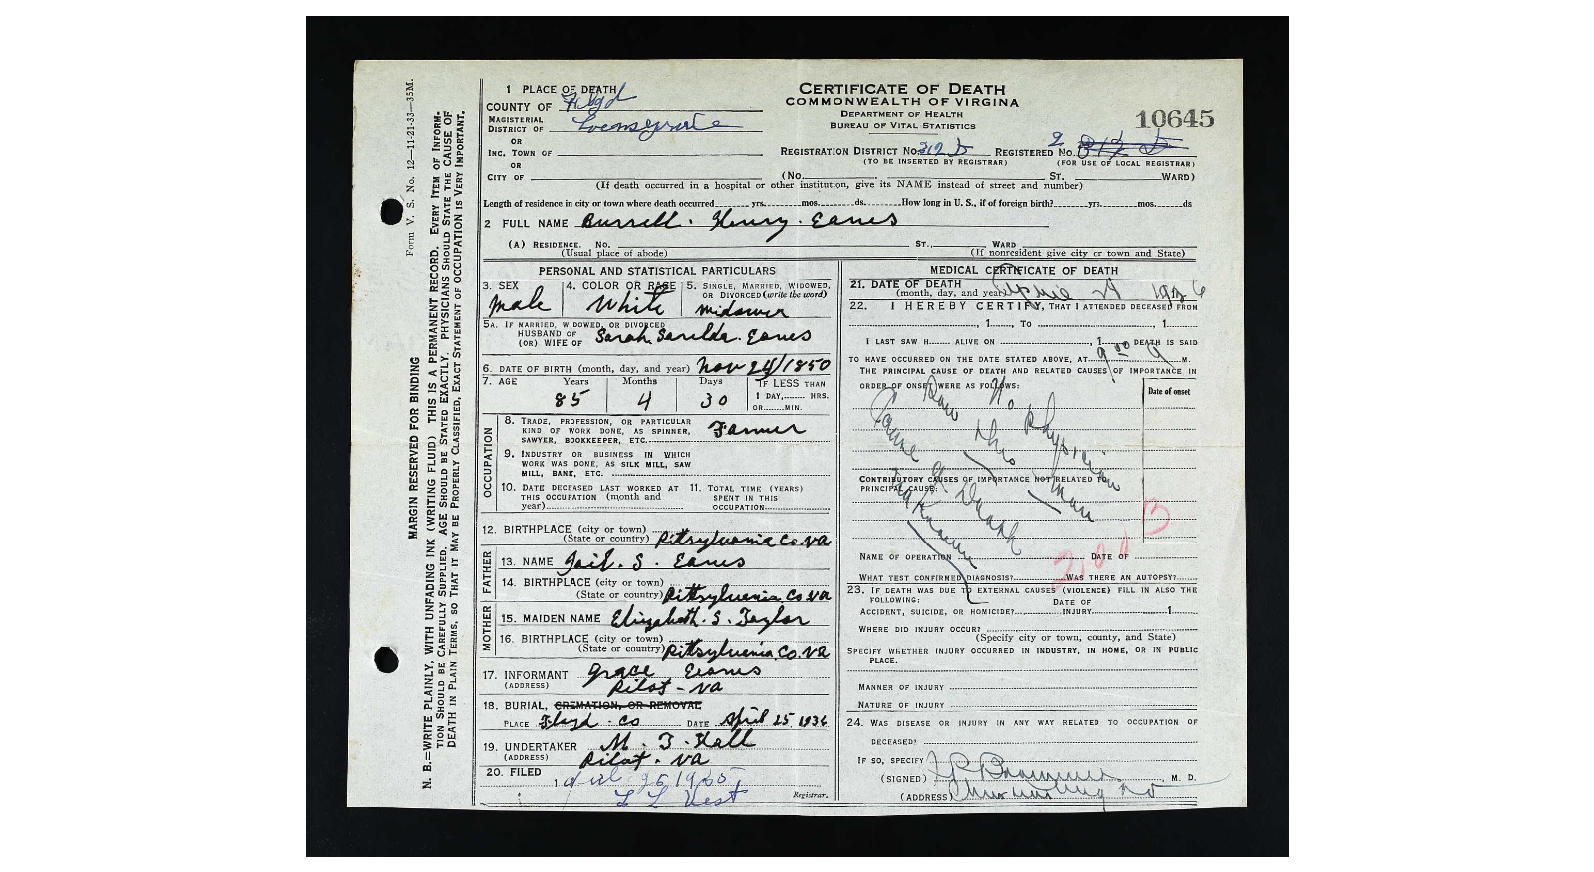 Form V. S. No. 12—11-21-33—35M.
MARGIN RESERVED FOR BINDING
N. B.—WRITE PLAINLY, WITH UNFADING INK (WRITING FLUID) THIS IS A PERMANENT RECORD. EVERY ITEM OF INFORM-
TION SHOULD BE CAREFULLY SUPPLIED. AGE SHOULD BE STATED EXACTLY. PHYSICIANS SHOULD STATE THE CAUSE OF
DEATH IN PLAIN TERMS, SO THAT IT MAY BE PROPERLY CLASSIFIED, EXACT STATEMENT OF OCCUPATION IS VERY IMPORTANT.
1 PLACE OF DEATH
COUNTY OF Floyd
MAGISTERIAL
DISTRICT OF
OR
INC. TOWN OF
OR
CITY OF
CERTIFICATE OF DEATH
COMMONWEALTH OF VIRGINA
DEPARTMENT OF HEALTH
BUREAU OF VITAL STATISTICS
10645
REGISTRATION DISTRICT No. 312 REGISTERED No. 2
(TO BE INSERTED BY REGISTRAR) (FOR USE OF LOCAL REGISTRAR)
(No. ST. WARD)
(If death occurred in a hospital or other institution, give its NAME instead of street and number)
Length of residence in city or town where death occurred yrs. mos. ds. How long in U. S., if of foreign birth? yrs. mos. ds
2 FULL NAME Burrell. Henry. Eanes
(A) RESIDENCE. No. ST., WARD
(Usual place of abode) (If nonresident give city or town and State)
PERSONAL AND STATISTICAL PARTICULARS
3. SEX 4. COLOR OR RACE 5. SINGLE, MARRIED, WIDOWED,
OR DIVORCED (write the word)
Male White Widower
5A. IF MARRIED, WIDOWED, OR DIVORCED
HUSBAND OF
(OR) WIFE OF Sarah. Sarilda. Eanes
6. DATE OF BIRTH (month, day, and year) Nov 24/1850
7. AGE Years Months Days IF LESS THAN
1 DAY, HRS.
OR MIN.
85 4 30
OCCUPATION
8. TRADE, PROFESSION, OR PARTICULAR
KIND OF WORK DONE, AS SPINNER,
SAWYER, BOOKKEEPER, ETC. Farmer
9. INDUSTRY OR BUSINESS IN WHICH
WORK WAS DONE, AS SILK MILL, SAW
MILL, BANK, ETC.
10. DATE DECEASED LAST WORKED AT
THIS OCCUPATION (month and
year)
11. TOTAL TIME (YEARS)
SPENT IN THIS
OCCUPATION
12. BIRTHPLACE (city or town)
(State or country) Pittsylvania Co. va
FATHER
13. NAME S. Eanes
14. BIRTHPLACE (city or town)
(State or country) Pittsylvenia Co va
MOTHER
15. MAIDEN NAME Elizabeth. S. Taylor
16. BIRTHPLACE (city or town)
(State or country) Pittsylvenia. Co. va
17. INFORMANT Grace Eanes
(ADDRESS) Pilot - va
18. BURIAL, CREMATION, OR REMOVAL
PLACE Floyd - Co DATE April 25 1936
19. UNDERTAKER M. F. Hall
(ADDRESS) Pilot - va
20. FILED
L L Vest
Registrar.
MEDICAL CERTIFICATE OF DEATH
21. DATE OF DEATH
(month, day, and year) 1936
22. I HEREBY CERTIFY, THAT I ATTENDED DECEASED FROM
, 1 , TO , 1
I LAST SAW H ALIVE ON , 1 DEATH IS SAID
TO HAVE OCCURRED ON THE DATE STATED ABOVE, AT 9 00 A M.
THE PRINCIPAL CAUSE OF DEATH AND RELATED CAUSES OF IMPORTANCE IN
ORDER OF ONSET WERE AS FOLLOWS:
Date of onset
No Physician
Saw this man
Cause of Death
CONTRIBUTORY CAUSES OF IMPORTANCE NOT RELATED TO
PRINCIPAL CAUSE:
NAME OF OPERATION DATE OF
WHAT TEST CONFIRMED DIAGNOSIS? WAS THERE AN AUTOPSY?
23. IF DEATH WAS DUE TO EXTERNAL CAUSES (VIOLENCE) FILL IN ALSO THE
FOLLOWING: DATE OF
ACCIDENT, SUICIDE, OR HOMICIDE? INJURY 1
WHERE DID INJURY OCCUR?
(Specify city or town, county, and State)
SPECIFY WHETHER INJURY OCCURRED IN INDUSTRY, IN HOME, OR IN PUBLIC
PLACE.
MANNER OF INJURY
NATURE OF INJURY
24. WAS DISEASE OR INJURY IN ANY WAY RELATED TO OCCUPATION OF
DECEASED?
IF SO, SPECIFY
(SIGNED) , M. D.
(ADDRESS)